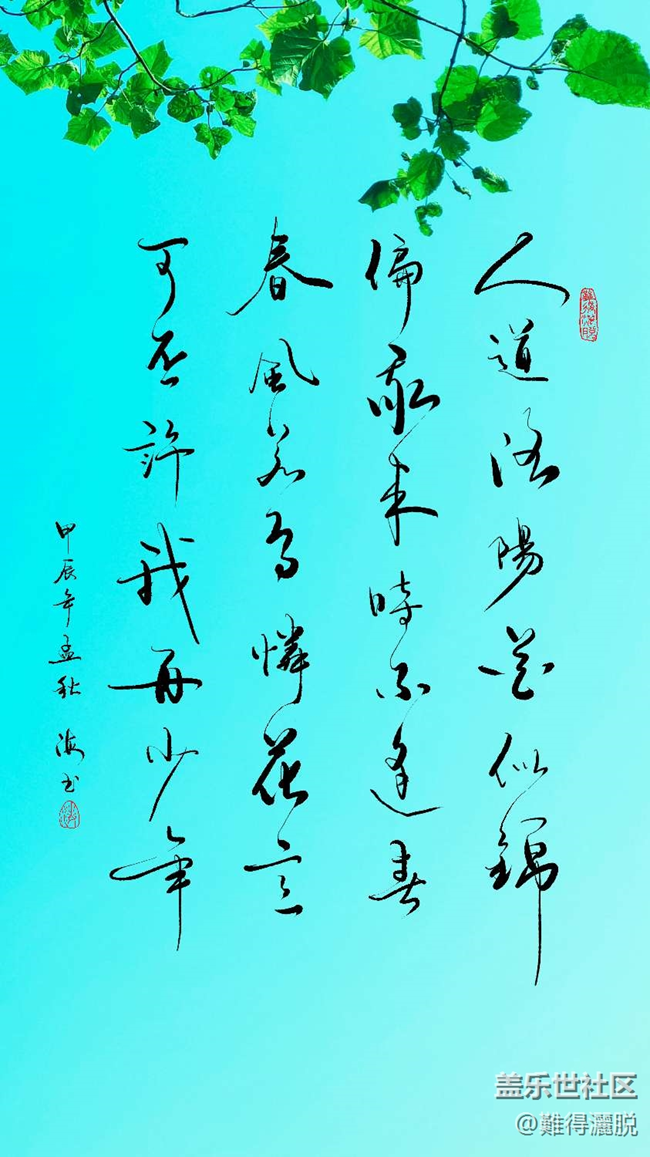 人道洛陽花似錦
偏我来時不逢春
春風若有憐花意
可否許我再少年
甲辰年孟秋 海书
盖乐世社区
@難得灑脱